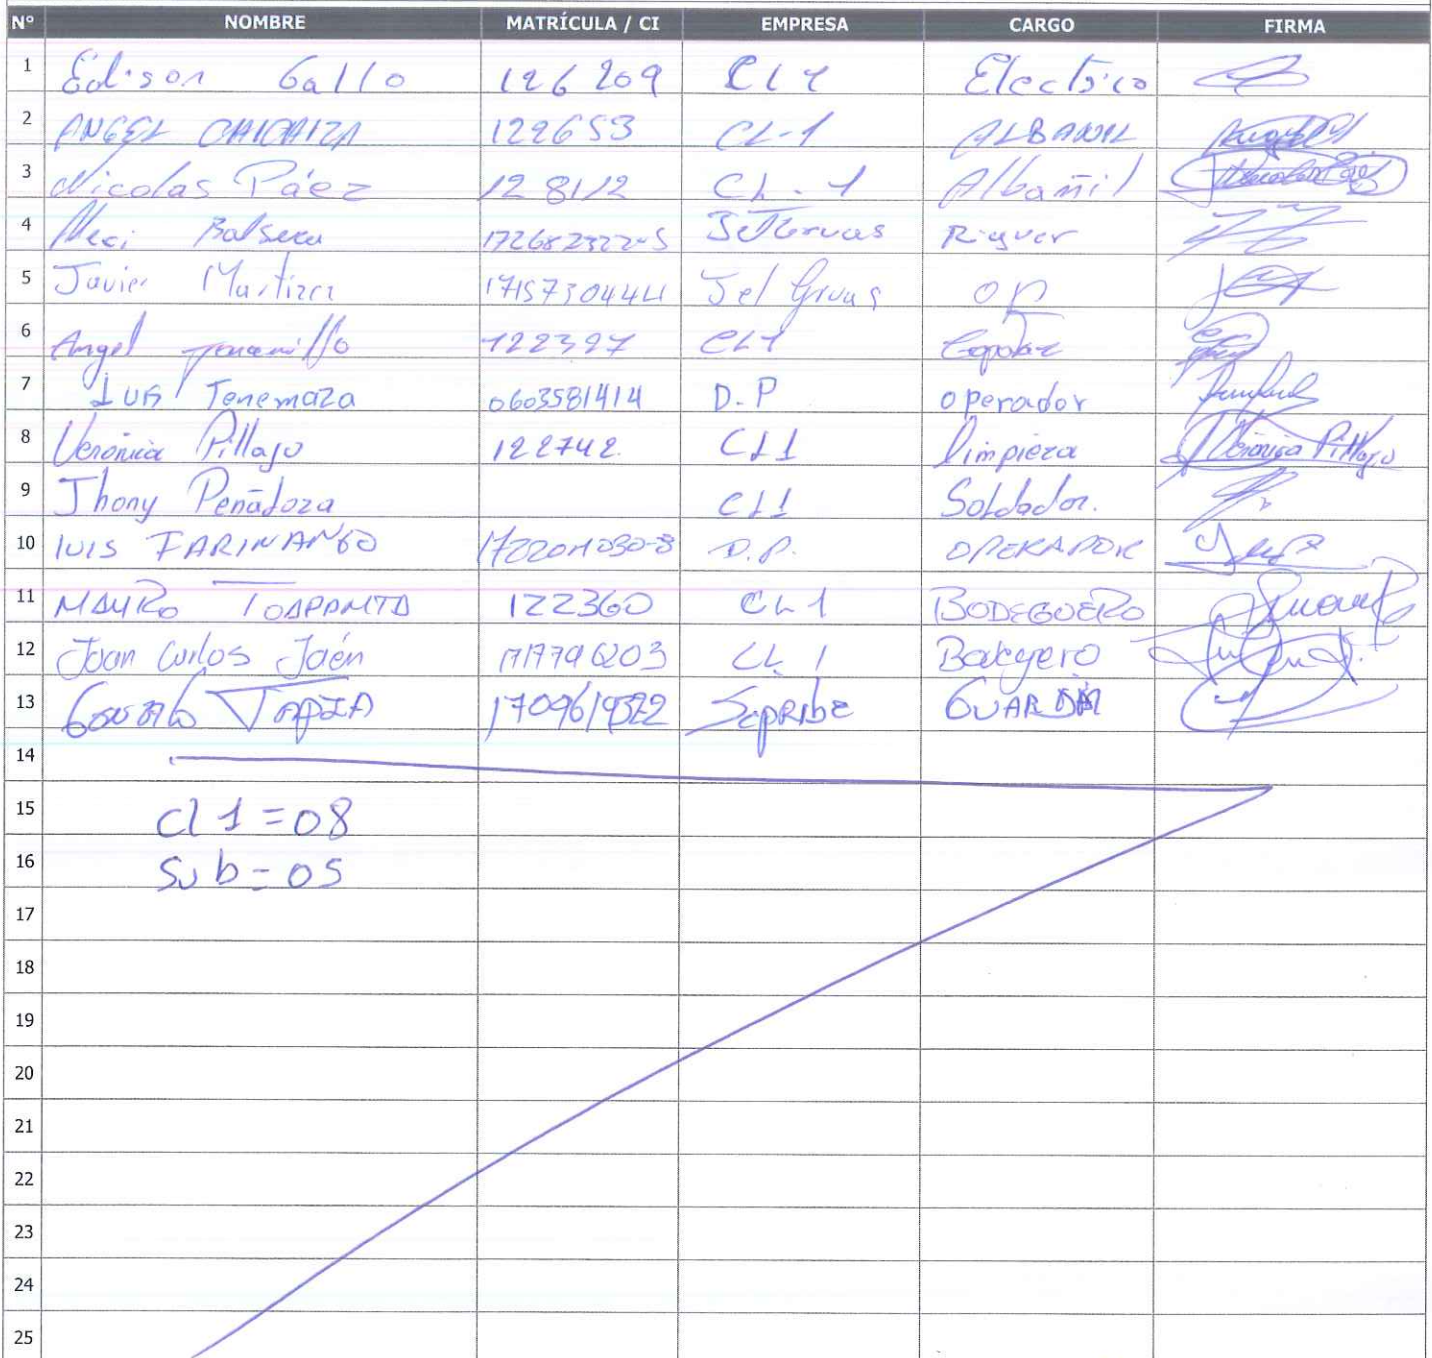 N° NOMBRE MATRÍCULA / CI EMPRESA CARGO FIRMA
1 Edison Gallo 126209 CL1 Electrico
2 ANGEL CHICAIZA 122653 CL-1 ALBANIL
3 Nicolas Páez 128112 CL-1 Albañil
4 Balseca Riguer
5 Javier Martinez 1715730444 Jel Gruas OP
6 Angel Jaramillo 122397 CL1
7 Luis Tenemaza 0603581414 D.P operador
8 Verónica Pillajo 122742. CL1 limpieza Verónica Pillajo
9 Jhony Peñaloza CL1 Soldador.
10 LUIS FARINANGO D.P. OPERADOR
11 MAURO TOAPANTA 122360 CL1 BODEGUERO
12 Joan Carlos Jaén CL1
13 TAPIA Sepribe GUARDIA
14
15 cl 1 = 08
16 Sub = 05
17
18
19
20
21
22
23
24
25